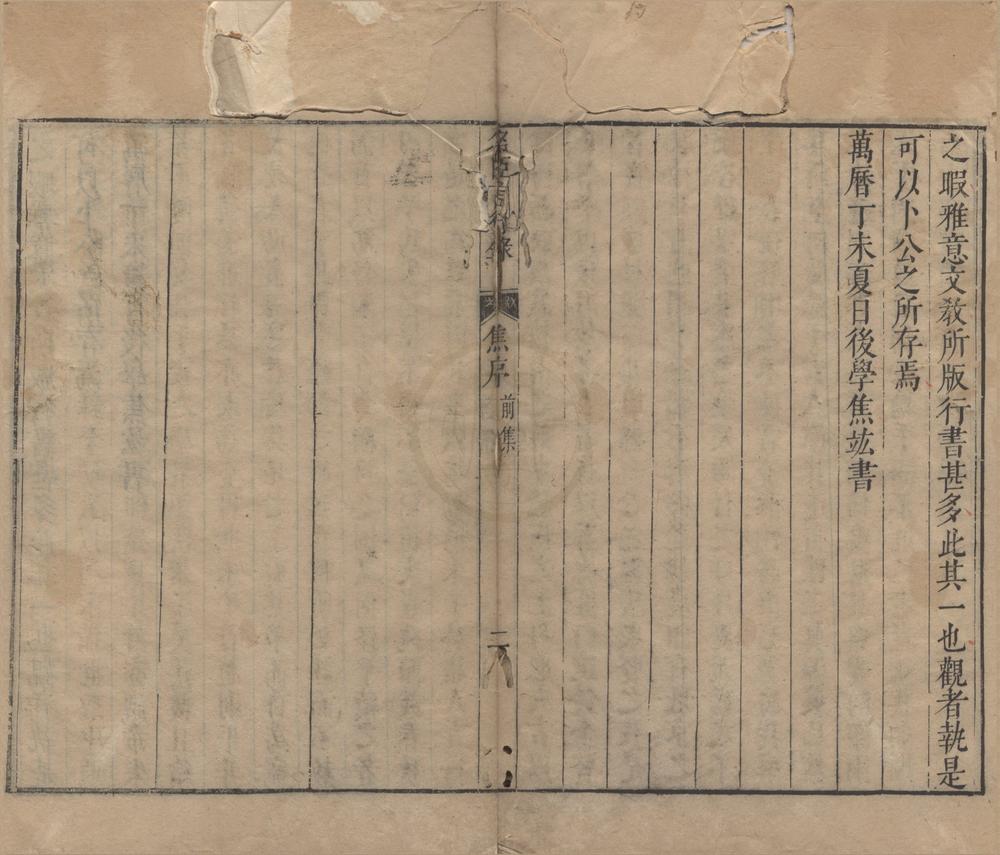 之暇雅意文敎所版行書甚多此其一也觀者執是
可以卜公之所存焉
萬曆丁未夏日後學焦竑書
名臣言行錄
焦序
前集
二